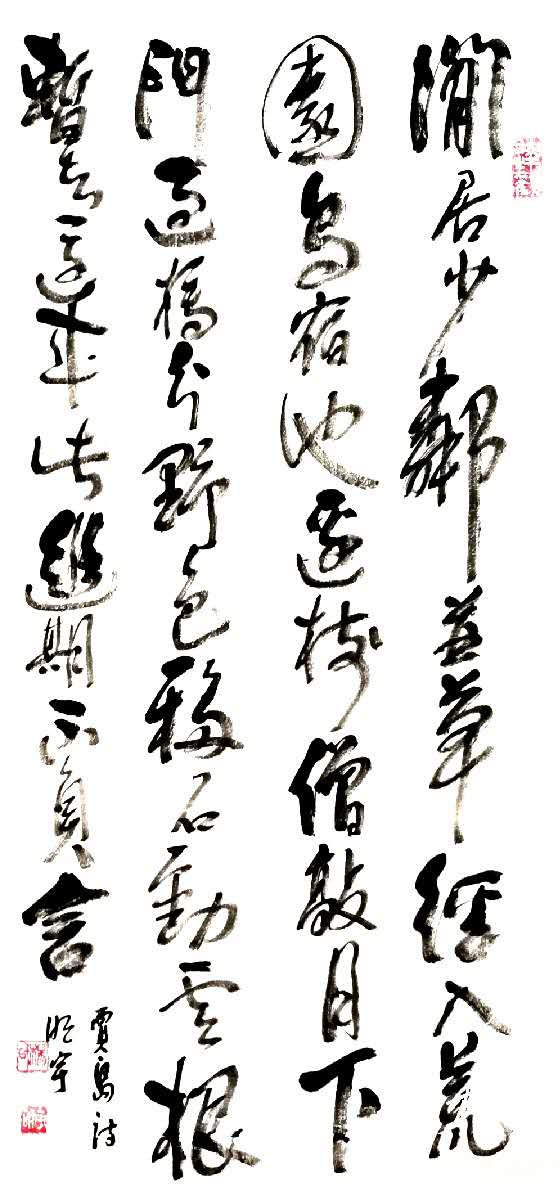 閒居少鄰並草徑入荒
園鳥宿池邊樹僧敲月下
門過橋分野色移石動雲根
暫去還來此幽期不負言
賈島詩